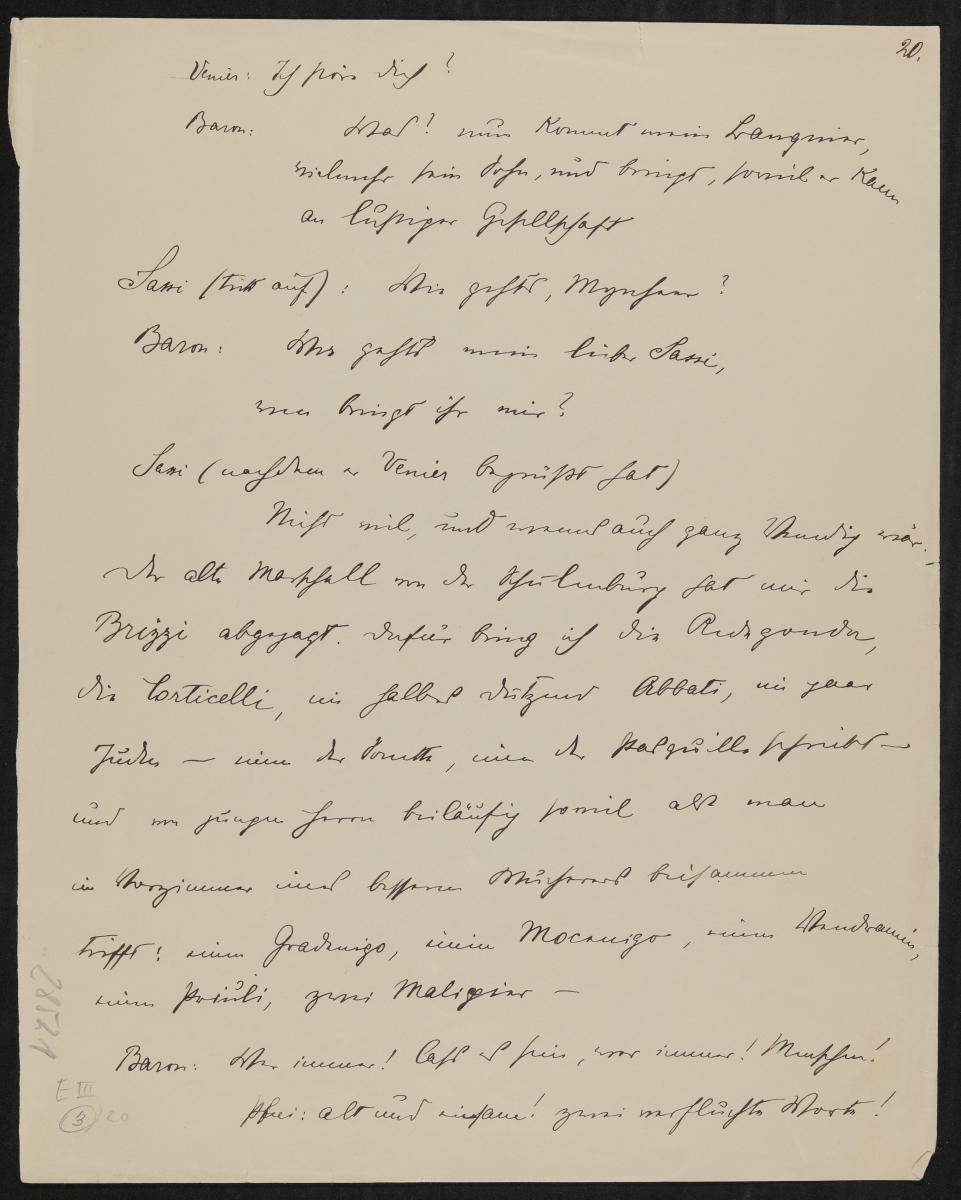 20.
Venier: Ich störe dich?
Baron: Was? nun kommt mein Languier,
vielmehr sein Sohn, und bringt, soviel er kann
an lustiger Gesellschaft
Sassi (tritt auf): Wie gehts, Mynheer?
Baron: Wie gehts mein lieber Sassi,
wen bringt ihr mir?
Sassi (nachdem er Venier begrüßt hat)
Nicht viel, und wenns auch ganz Venedig wär.
Der alte Marschall von der Schulenburg hat mir die
Brizzi abgejagt. Dafür bring ich die Redegonda,
die Corticelli, ein halbes Dutzend Abbati, ein paar
Juden – einen der Sonette, einen der Pasquille schreibt –
und von jungen Herrn beiläufig soviel als man
im Vorzimmer eines besseren Wucherers beisammen
trifft: einen Gradenigo, einen Mocenigo, einen Vendramin,
einen Priuli, zwei Malipier –
Baron: Wer immer! lass es sein, wer immer! Menschen!
Pfui: alt und einsam! zwei verfluchte Worte!
28521
E III
3 20